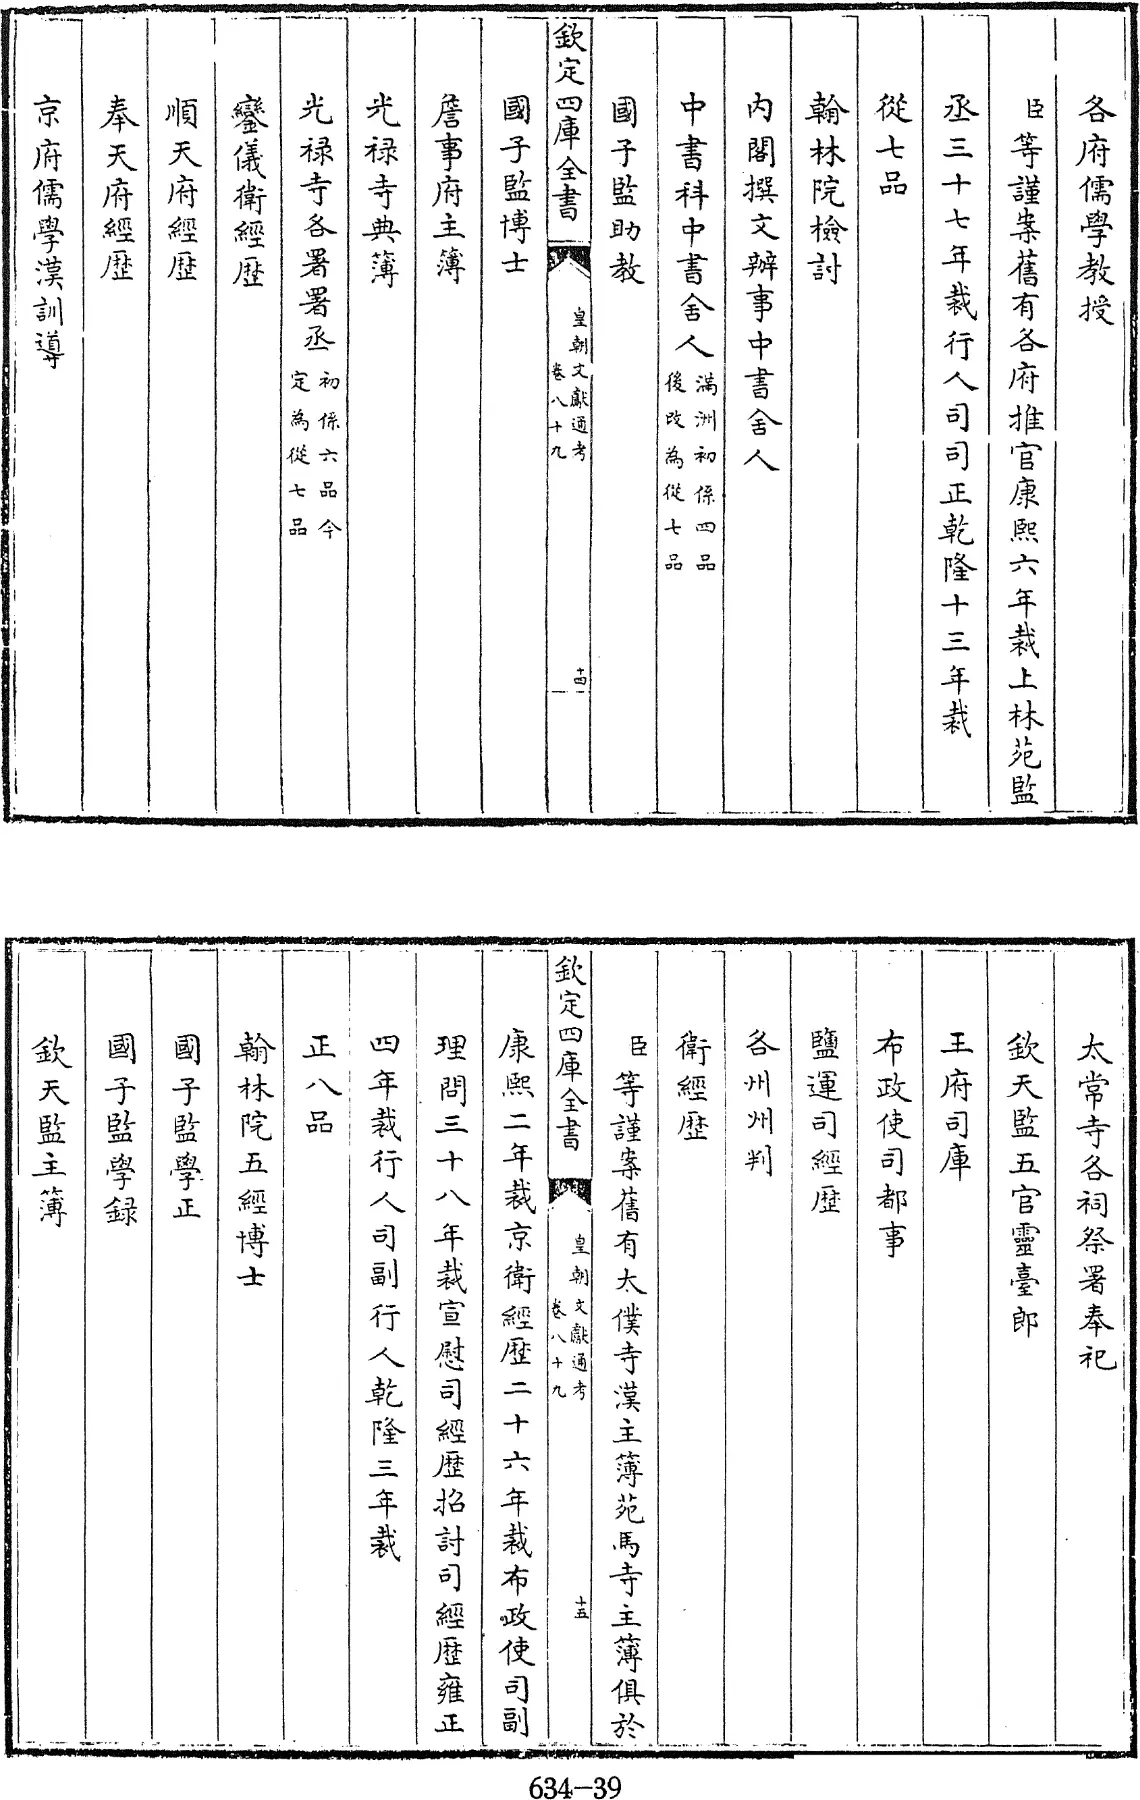 各府儒學教授
臣等謹案舊有各府推官康熙六年裁上林苑監
丞三十七年裁行人司司正乾隆十三年裁
從七品
翰林院檢討
内閣撰文辦事中書舍人
中書科中書舍人滿洲初係四品後改為從七品
國子監助教
欽定四庫全書
皇朝文獻通考
卷八十九
十四
國子監博士
詹事府主簿
光禄寺典簿
光禄寺各署署丞初係六品今定為從七品
鑾儀衛經歴
順天府經歴
奉天府經歴
京府儒學漢訓導
太常寺各祠祭署奉祀
欽天監五官靈臺郎
王府司庫
布政使司都事
鹽運司經歴
各州州判
衛經歴
臣等謹案舊有太僕寺漢主簿苑馬寺主簿俱於
欽定四庫全書
皇朝文獻通考
卷八十九
十五
康熙二年裁京衛經歴二十六年裁布政使司副
理問三十八年裁宣慰司經歴招討司經歴雍正
四年裁行人司副行人乾隆三年裁
正八品
翰林院五經博士
國子監學正
國子監學録
欽天監主簿
634-39